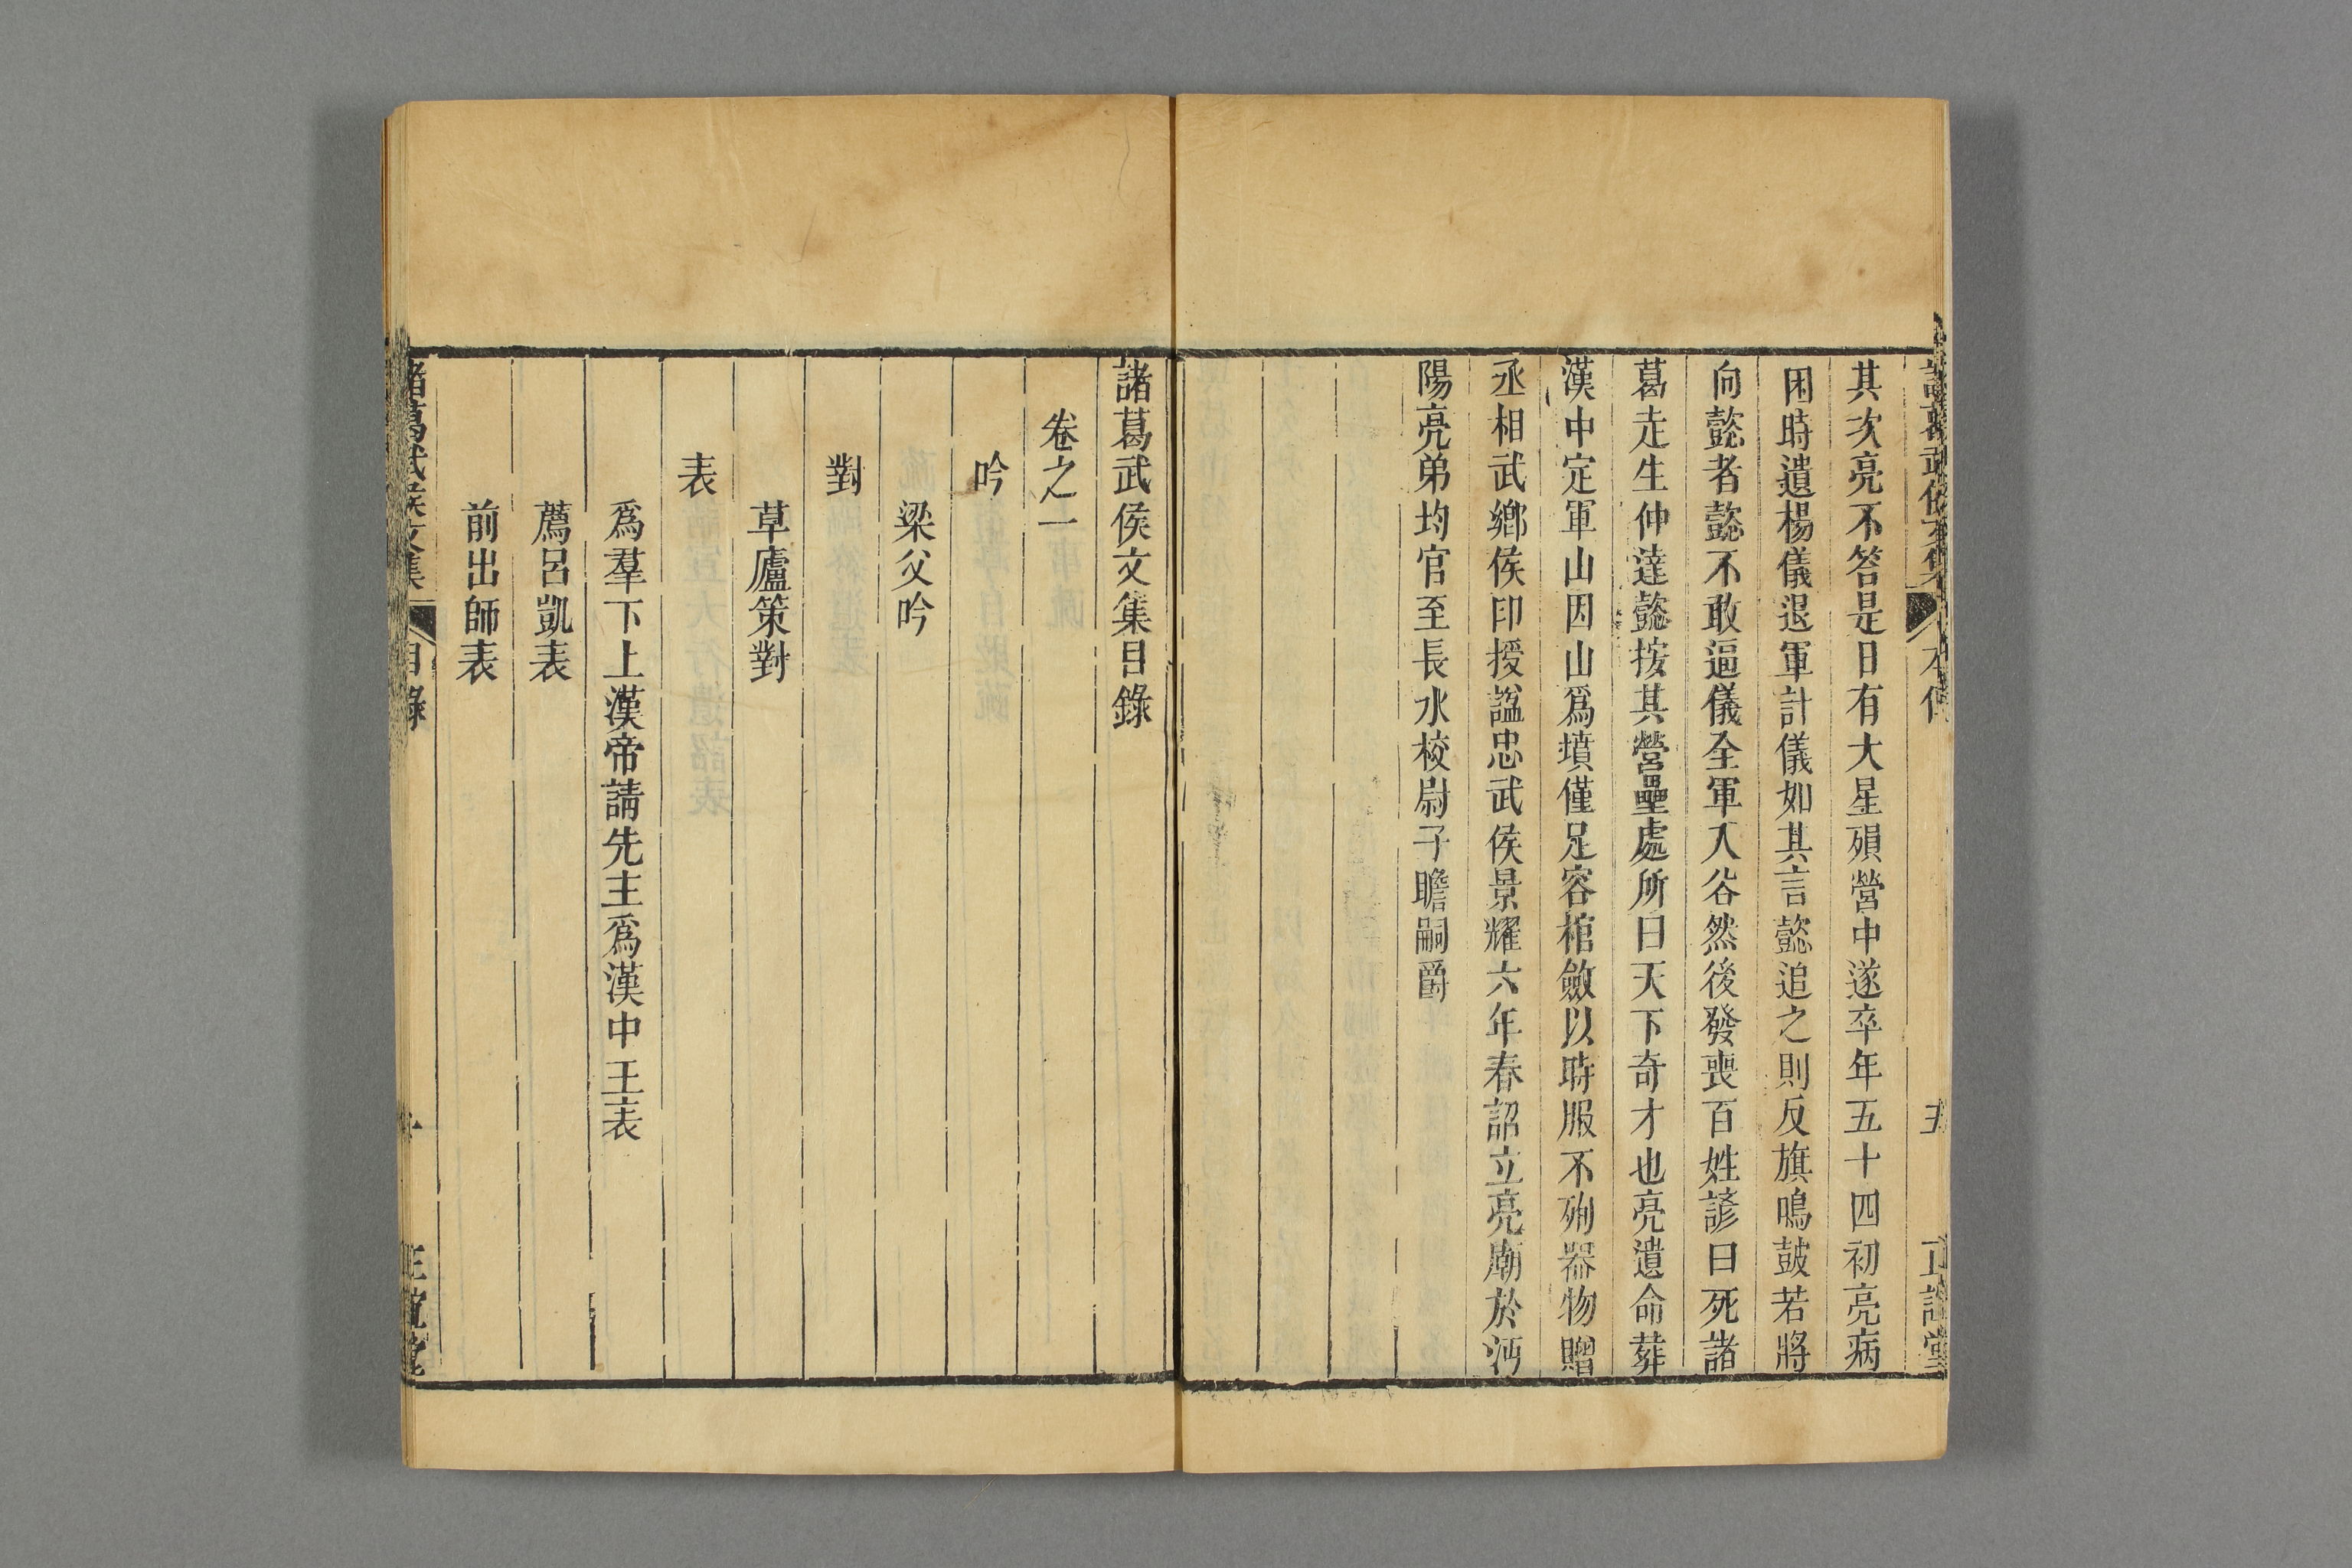 其次亮不答是日有大星殞營中遂卒年五十四初亮病
困時遺楊儀退軍計儀如其言懿追之則反旗鳴鼓若將
向懿者懿不敢逼儀全軍入谷然後發喪百姓諺曰死諸
葛走生仲達懿按其營壘處所曰天下奇才也亮遺命葬
漢中定軍山因山爲墳僅足容棺斂以時服不殉器物贈
丞相武鄉侯印授諡忠武侯景耀六年春詔立亮廟於沔
陽亮弟均官至長水校尉子瞻嗣爵
諸葛武侯文集目錄
卷之一
吟
梁父吟
對
草廬策對
表
爲羣下上漢帝請先主爲漢中王表
薦呂凱表
前出師表
諸葛武侯文集 目錄 一 正誼堂